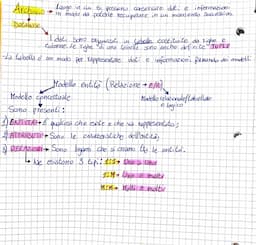 Archivio → Luogo in cui si possono conservare dati e informazioni
in modo da poterle recuperare in un momento successivo.
Database
I dati sono organizzati in tabelle costituite da righe e
colonne. Le righe di una tabella sono anche definite "TUPLE"
-La tabella è un modo per rappresentare dati e informazioni facendo dei modelli.
Modello entità (Relazione → E/R)
Modello concettuale
Modello relazionale/tabellare
o logico
Sono presenti:
1) ENTITÀ → È qualcosa che esiste e che va rappresentato;
2) ATTRIBUTI → Sono le caratteristiche dell'entità;
3) RELAZIONI → Sono legami che si creano tra le entità.
Ne esistono 3 tipi: 1:1 → Uno a Uno
1:M → Uno a molti
M:M → Molti a molti